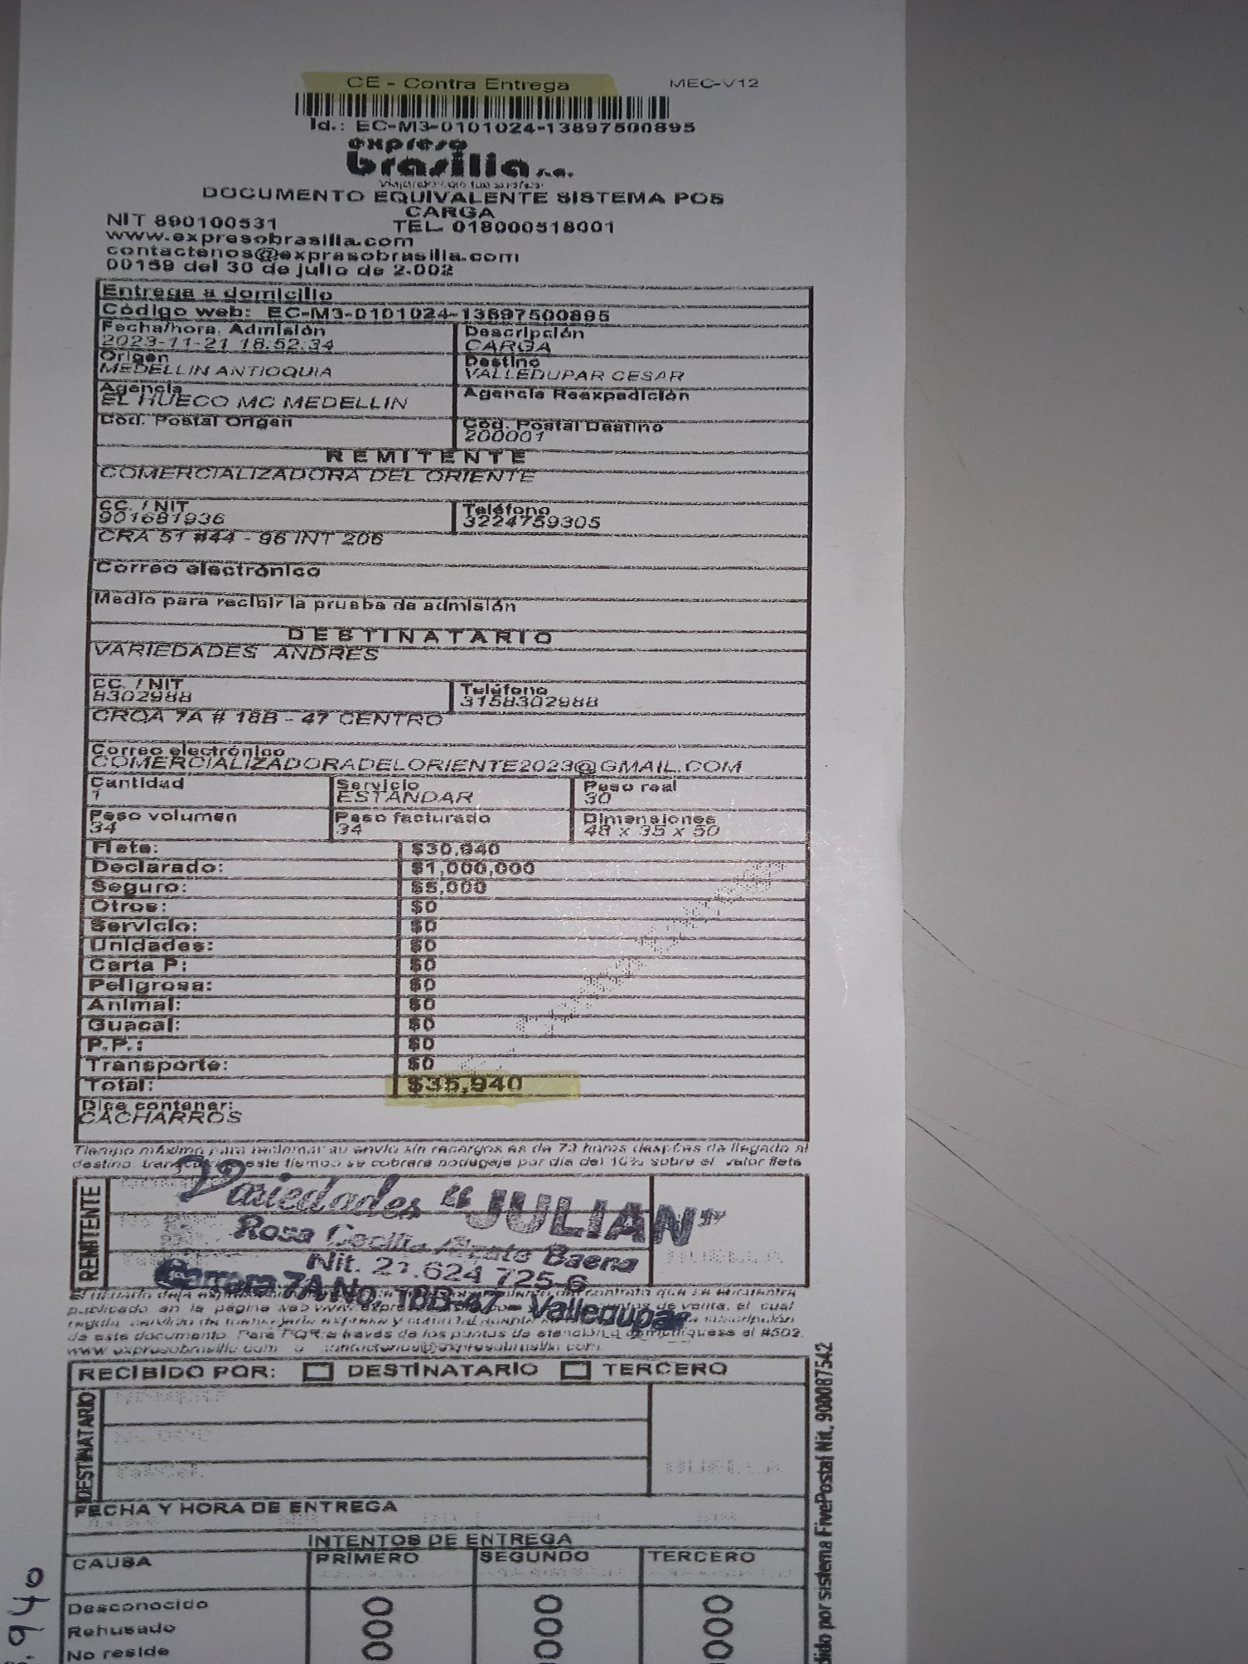 CE - Contra Entrega MEC-V12
Id.: EC-M3-0101024-13897500895
expreso
brasilia s.a.
DOCUMENTO EQUIVALENTE SISTEMA POS
CARGA
NIT 890100531 TEL. 018000518001
www.expresobrasilia.com
contactenos@expresobrasilia.com
00159 del 30 de julio de 2.002
Entrega a domicilio
Código web: EC-M3-0101024-13897500895
Fecha/hora. Admisión Descripción
2023-11-21 18:52:34 CARGA
Origen Destino
MEDELLIN ANTIOQUIA VALLEDUPAR CESAR
Agencia Agencia Reexpedición
EL HUECO MC MEDELLIN
Cod. Postal Origen Cód. Postal Destino
200001
REMITENTE
COMERCIALIZADORA DEL ORIENTE
CC. / NIT Teléfono
901681936 3224759305
CRA 51 #44 - 96 INT 206
Correo electrónico
Medio para recibir la prueba de admisión
DESTINATARIO
VARIEDADES ANDRES
CC. / NIT Teléfono
8302988 3158302988
CRQA 7A # 18B - 47 CENTRO
Correo electrónico
COMERCIALIZADORADELORIENTE2023@GMAIL.COM
Cantidad Servicio Peso real
1 ESTANDAR 30
Peso volumen Peso facturado Dimensiones
34 34 48 x 35 x 50
Flete: $30,940
Declarado: $1,000,000
Seguro: $5,000
Otros: $0
Servicio: $0
Unidades: $0
Carta P: $0
Peligrosa: $0
Animal: $0
Guacal: $0
P.P.: $0
Transporte: $0
Total: $35,940
Dice contener:
CACHARROS
Tiempo máximo para reclamar su envío sin recargos es de 72 horas después de llegado al
destino, este tiempo se cobrará bodegaje por día del 10% sobre el valor flete
REMITENTE
Variedades "JULIAN"
Rosa Cecilia Baena
Nit. 21.624 725-6
Carrera 7A No. 18B-47 - Valledupar
HUELLA
publicado en la página web de venta, el cual
regula
de este documento. Para PQR a través de los puntos de atención comuníquese al #502.
www.expresobrasilia.com o contactenos@expresobrasilia.com
RECIBIDO POR: DESTINATARIO TERCERO
DESTINATARIO
HUELLA
FECHA Y HORA DE ENTREGA
INTENTOS DE ENTREGA
CAUSA PRIMERO SEGUNDO TERCERO
Desconocido
Rehusado
No reside
dido por sistema FivePostal Nit. 900087542
.940